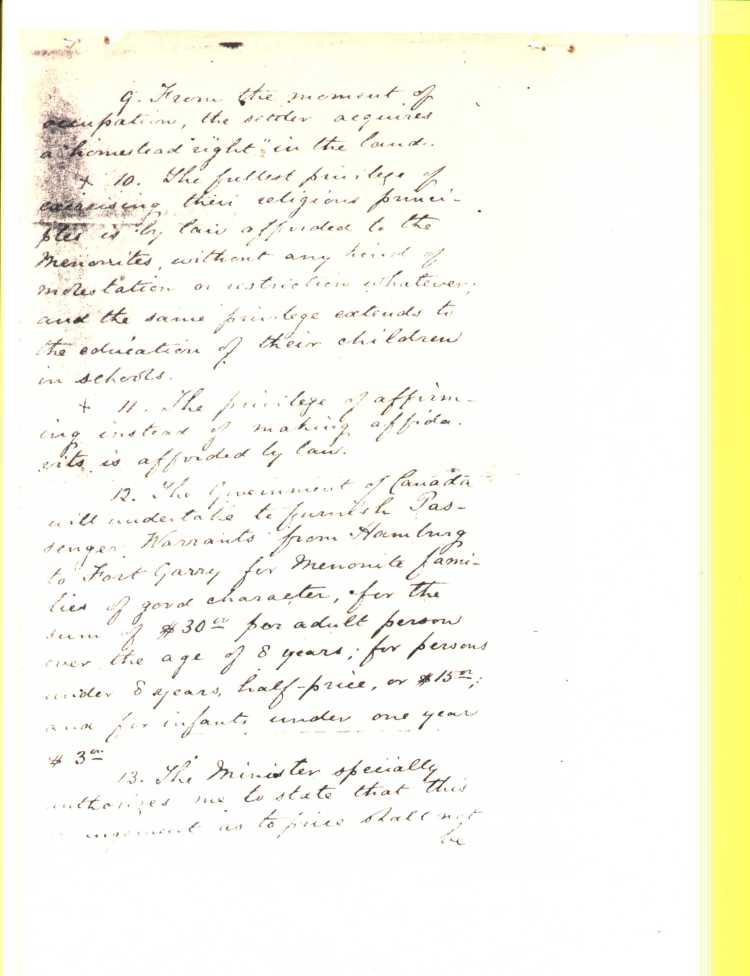 9. From the moment of
occupation, the settler acquires
a "homestead right" in the land.
+ 10. The fullest privilege of
exercising their religious princi-
ples is by law afforded to the
Menonites, without any kind of
molestation or restriction whatever;
and the same privilege extends to
the education of their children
in schools.
+ 11. The privilege of affirm-
ing instead of making affida-
vits is afforded by law.
12. The Government of Canada
will undertake to furnish Pas-
senger Warrants from Hamburg
to Fort Garry for Menonite fami-
lies of good character, for the
sum of $30 00 per adult person
over the age of 8 years; for persons
under 8 years, half-price, or $15 00;
and for infants under one year
$3 00
13. The Minister specially
authorizes me to state that this
as to price shall not
be